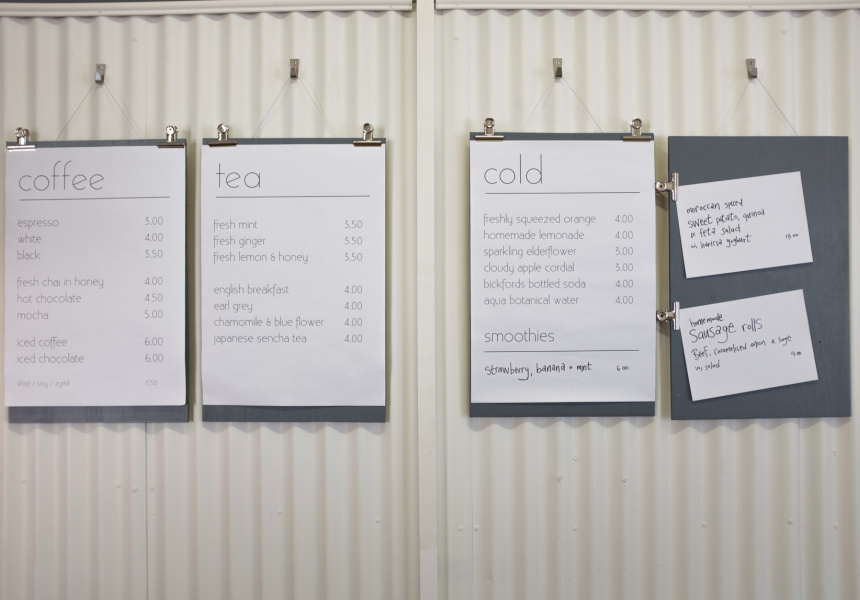 coffee
espresso 3.00
white 4.00
black 3.50
fresh chai in honey 4.00
hot chocolate 4.50
mocha 5.00
iced coffee 6.00
iced chocolate 6.00
/ soy /
tea
fresh mint 3.50
fresh ginger 3.50
fresh lemon & honey 3.50
english breakfast 4.00
earl grey 4.00
chamomile & blue flower 4.00
japanese sencha tea 4.00
cold
freshly squeezed orange 4.00
homemade lemonade 4.00
sparkling elderflower 3.00
cloudy apple cordial 3.00
bickfords bottled soda 4.00
aqua botanical water 4.00
smoothies
strawberry, banana + mint 6.00
moroccan spiced
sweet potato, quinoa
& feta salad
w/ harissa yoghurt 13.00
homemade
Sausage rolls
Beef, caramelised onion & sage
w/ salad 9.00